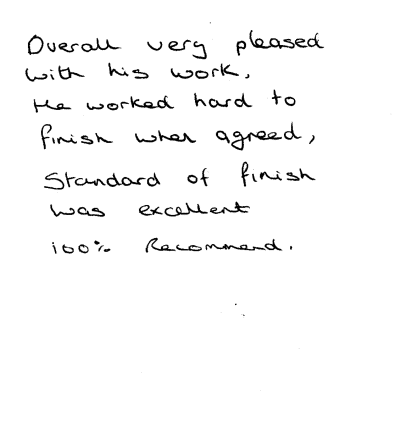 Overall very pleased
with his work,
He worked hard to
finish when agreed,
Standard of finish
was excellent
100% Recommend.